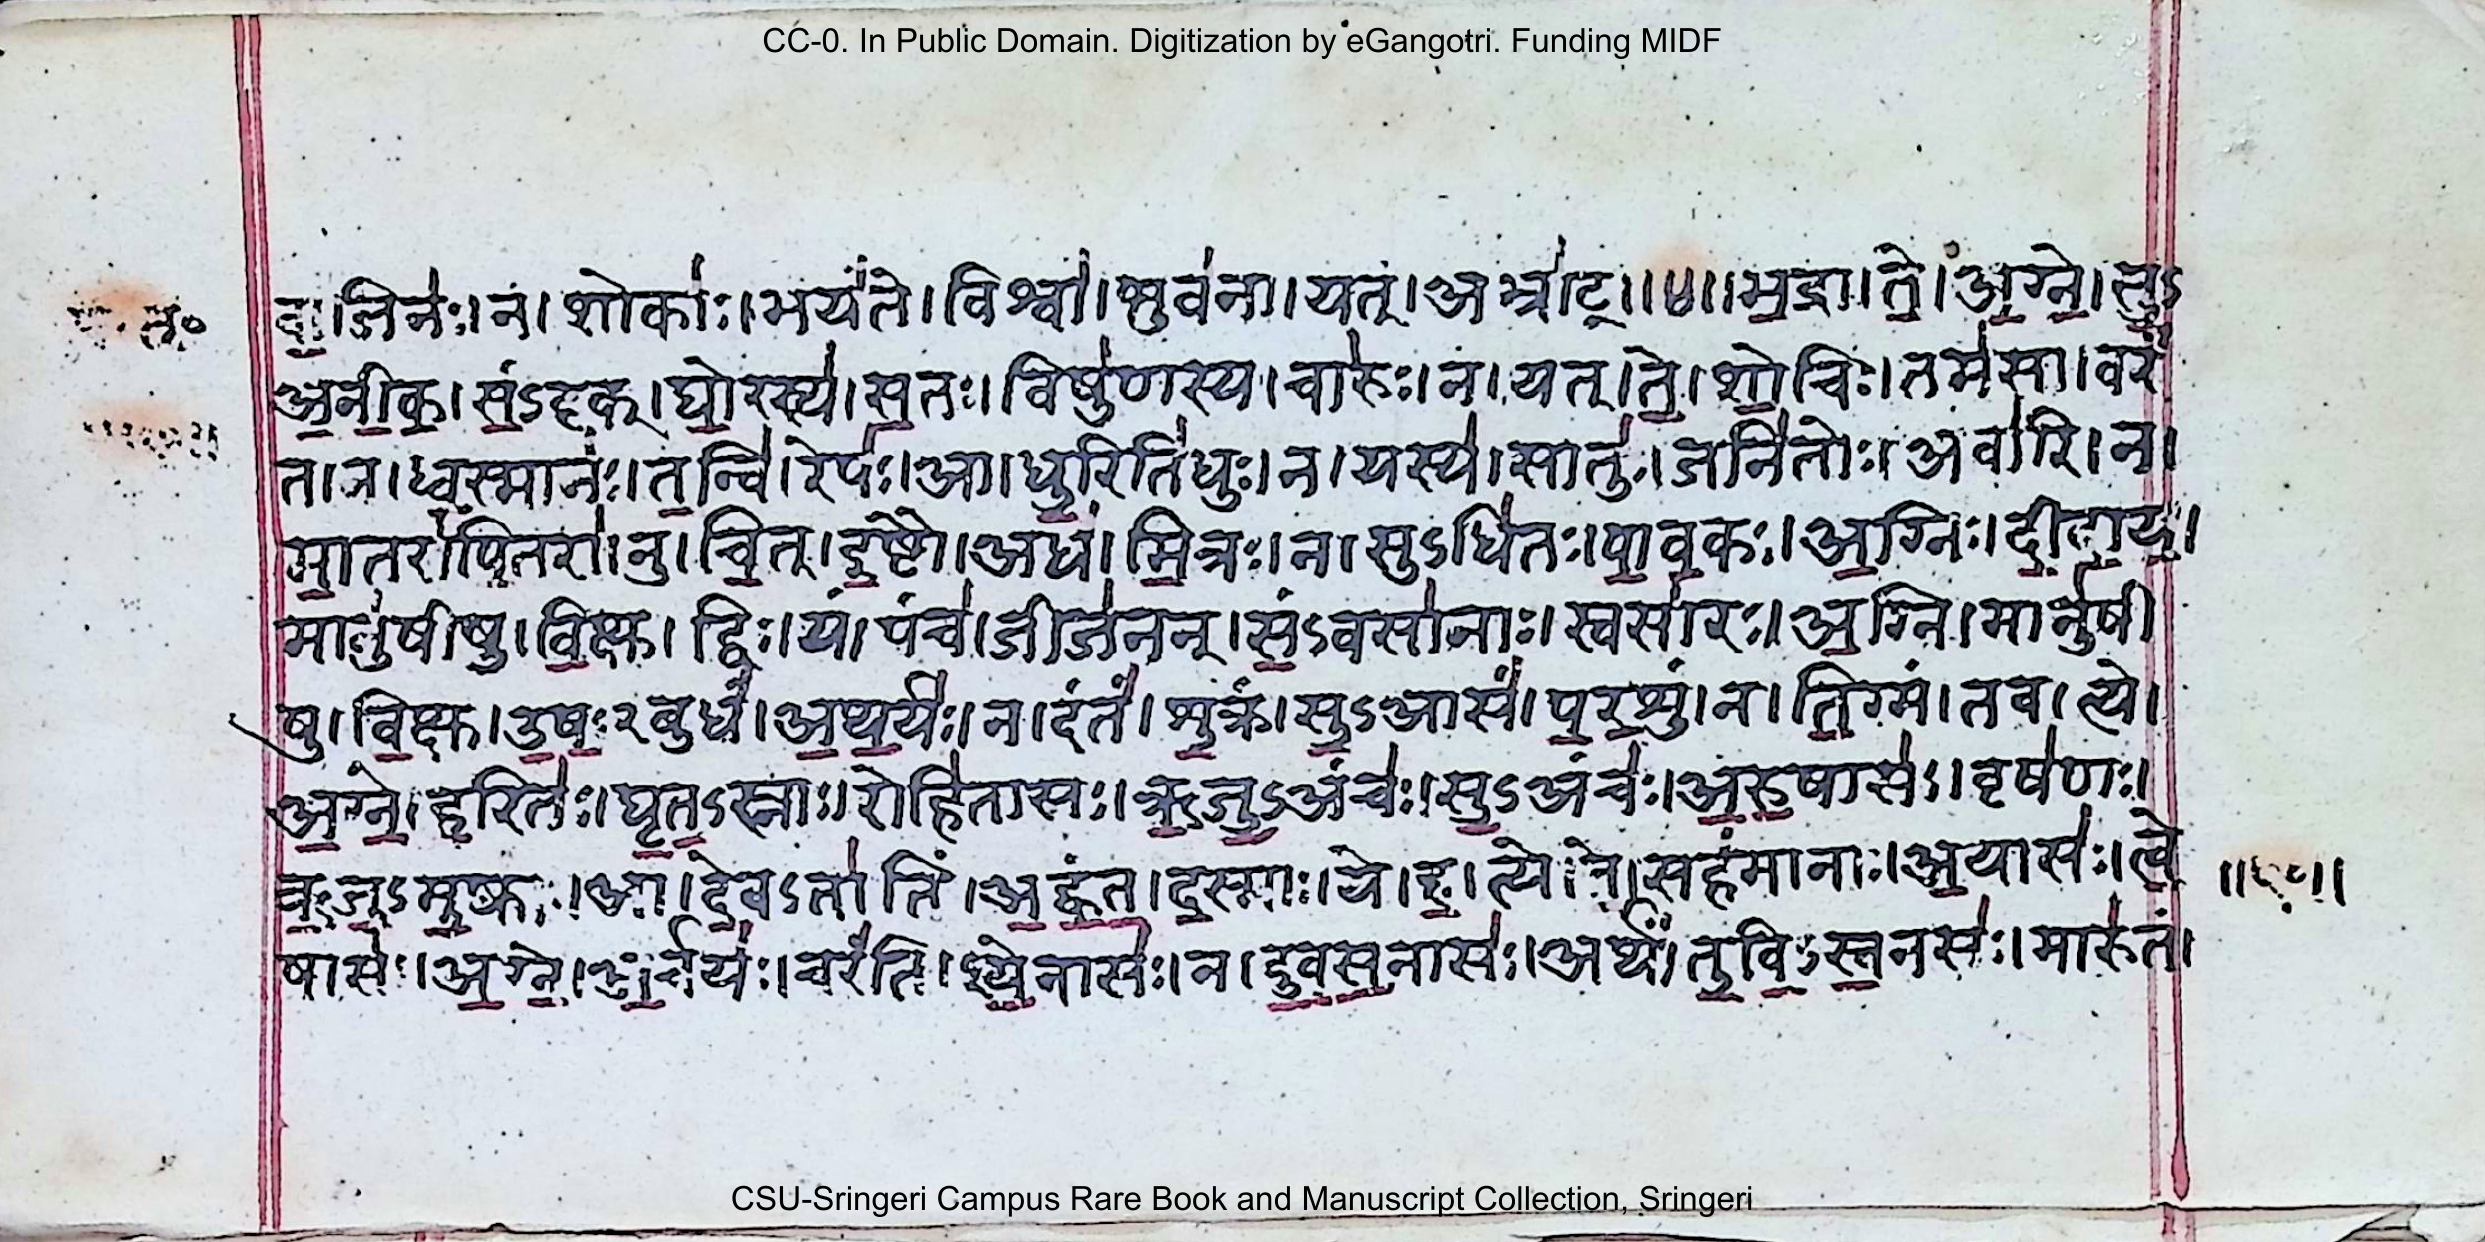 CC-0. In Public Domain. Digitization by eGangotri. Funding MIDF
वा॒जिन॑ः।न।शोका॑ः।भय॑ंते।विश्वा॑।भुव॑ना।यत्।अभ्रा॑ट्॥५॥भ॒द्रा।ते॒।अ॒ग्ने॒।सु॒ऽ
अ॒नी॒क॒।सं॒ऽदृक्।घो॒रस्य॑।स॒तः।विषु॑णस्य।चारु॑ः।न।यत्।ते॒।शो॒चिः।तम॑सा।वर॑ं
त।न।ध्व॒स्मान॑ः।त॒न्वि॑।रेप॑ः।आ।धु॒रिति॑धुः।न।यस्य॑।सातु॑ः।जनि॑तोः।अवा॑रि।न।
मा॒तरा॑पि॒तरा॑।नु।चि॒त्।इ॒ष्टौ।अध॑।मि॒त्रः।न।सुऽधि॑तः।पा॒व॒कः।अ॒ग्निः।दी॒दा॒य॒।
मानु॑षीषु।वि॒क्षु।द्विः।यं।पंच॑।जीज॑नन्।सं॒ऽवसा॑नाः।स्वसा॑रः।अ॒ग्निं।मानु॑षी
षु।वि॒क्षु।उ॒ष॒ःरबुध॑ं।अ॒थ॒र्य॑ः।न।दंत॑ं।शु॒क्रं।सु॒ऽआस॑ं।प॒र॒शुं।न।ति॒ग्मं।तव।त्ये।
अ॒ग्ने॒।ह॒रित॑ः।घृ॒त॒ऽस्नाः।रोहि॑तासः।ऋ॒जु॒ऽअंच॑ः।सु॒ऽअंच॑ः।अ॒रु॒षास॑ः।वृष॑णः।
ऋ॒जु॒ऽमु॒ष्काः।आ।दे॒वऽता॑तिं।अ॒ह्वं॒त॒।द॒स्माः।ये।ह॒।त्ये।ते॒।सह॑मानाः।अ॒यास॑ः।त्वे॒
षास॑ः।अ॒ग्ने॒।अ॒र्चय॑ः।चर॑ंति।श्ये॒नास॑ः।न।दु॒व॒स॒नास॑ः।अर्थ॑ं।तु॒वि॒ऽस्व॒नसः॑।मारु॑तं।
CSU-Sringeri Campus Rare Book and Manuscript Collection, Sringeri